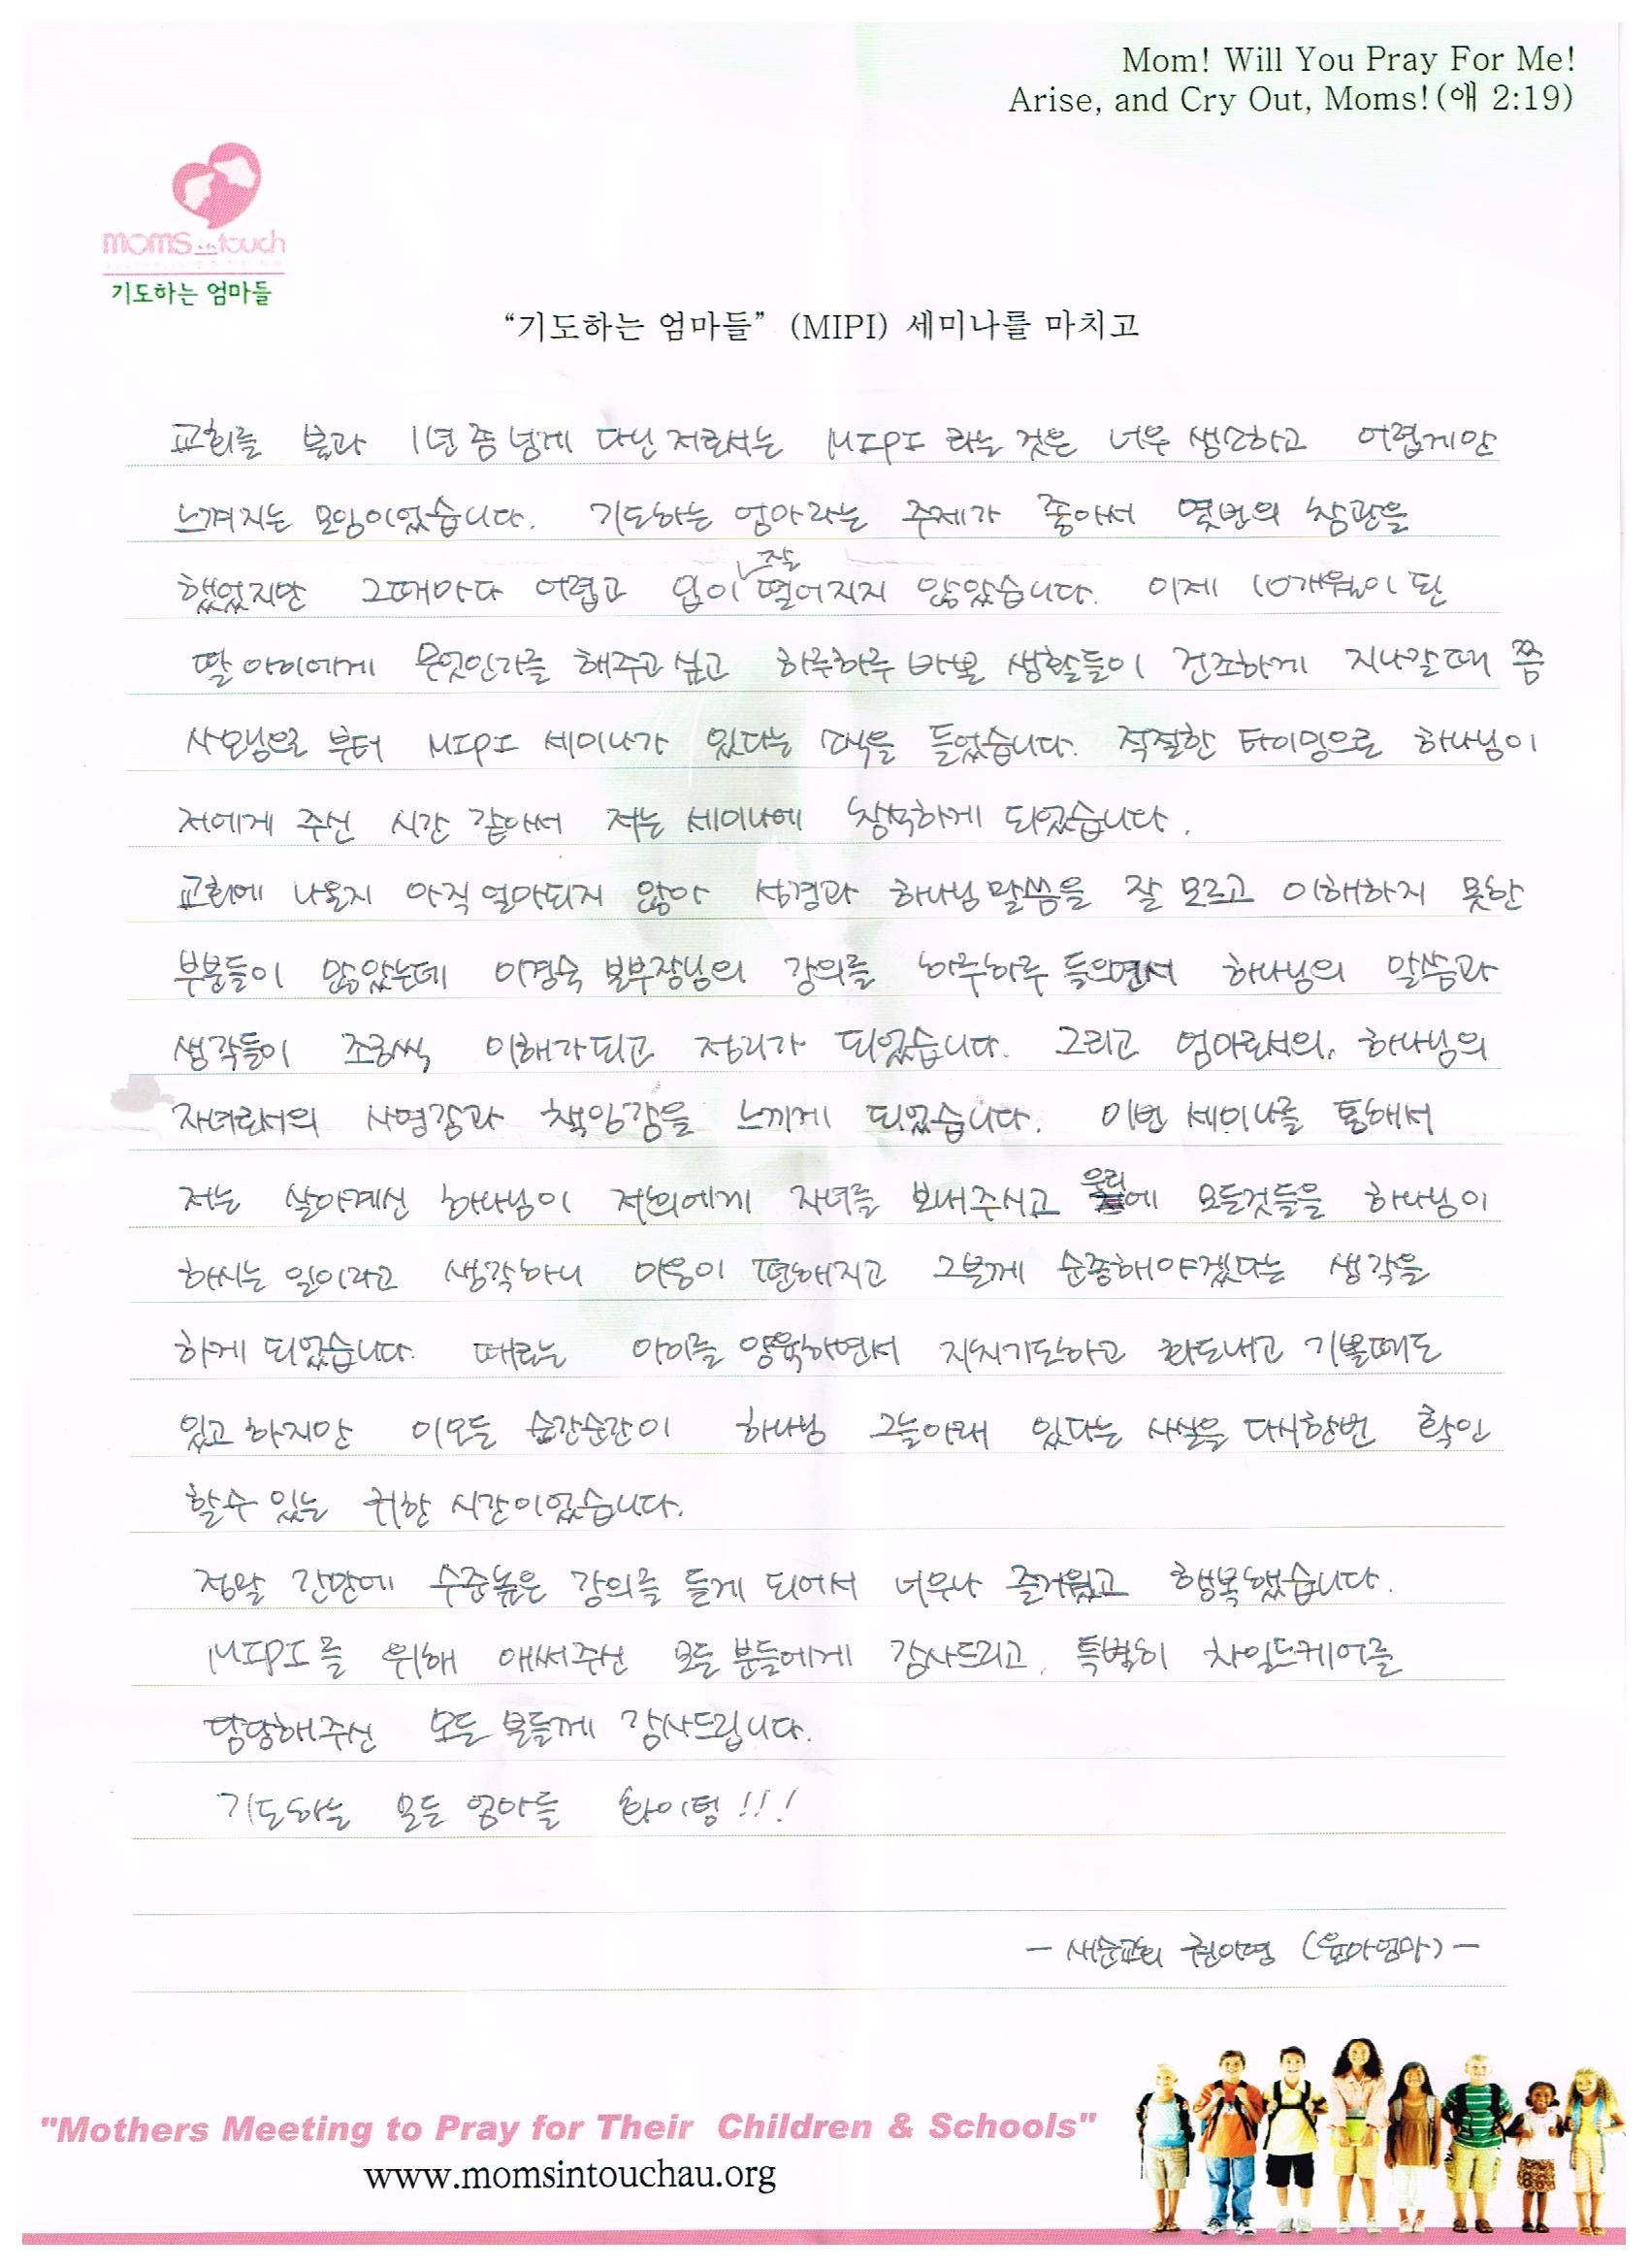 Mom! Will You Pray For Me!
Arise, and Cry Out, Moms!(애 2:19)
moms in touch
기도하는 엄마들
“기도하는 엄마들” (MIPI) 세미나를 마치고
교회를 불과 1년 쯤 넘게 다닌 저로서는 MIPI 라는 것은 너무 생소하고 어렵게만
느껴지는 모임이었습니다. 기도하는 엄마라는 주제가 좋아서 몇번의 참관을
했었지만 그때마다 어렵고 입이 잘 떨어지지 않았습니다. 이제 10개월이 된
딸 아이에게 무엇인가를 해주고 싶고 하루하루 바쁜 생활들이 건조하게 지나갈때 쯤
사모님으로 부터 MIPI 세미나가 있다는 소식을 들었습니다. 적절한 타이밍으로 하나님이
저에게 주신 시간 같아서 저는 세미나에 참석하게 되었습니다.
교회에 나온지 아직 얼마되지 않아 성경과 하나님 말씀을 잘 모르고 이해하지 못한
부분들이 많았는데 이경숙 본부장님의 강의를 하루하루 들으면서 하나님의 말씀과
생각들이 조금씩 이해가되고 정리가 되었습니다. 그리고 엄마로서의, 하나님의
자녀로서의 사명감과 책임감을 느끼게 되었습니다. 이번 세미나를 통해서
저는 살아계신 하나님이 저희에게 자녀를 보내주시고 우리에 모든것들을 하나님이
하시는 일이라고 생각하니 마음이 편해지고 그분께 순종해야겠다는 생각을
하게 되었습니다. 때로는 아이를 양육하면서 지치기도하고 화도내고 기쁠때도
있고 하지만 이모든 순간순간이 하나님 그늘아래 있다는 사실을 다시한번 확인
할수 있는 귀한 시간이었습니다.
정말 간만에 수준높은 강의를 듣게 되어서 너무나 즐거웠고 행복했습니다.
MIPI를 위해 애써주신 모든 분들에게 감사드리고, 특별히 차일드케어를
담당해주신 모든 분들께 감사드립니다.
기도하는 모든 엄마들 화이팅!!!
- 새순교회 권아영 (윤아엄마) -
"Mothers Meeting to Pray for Their Children & Schools"
www.momsintouchau.org